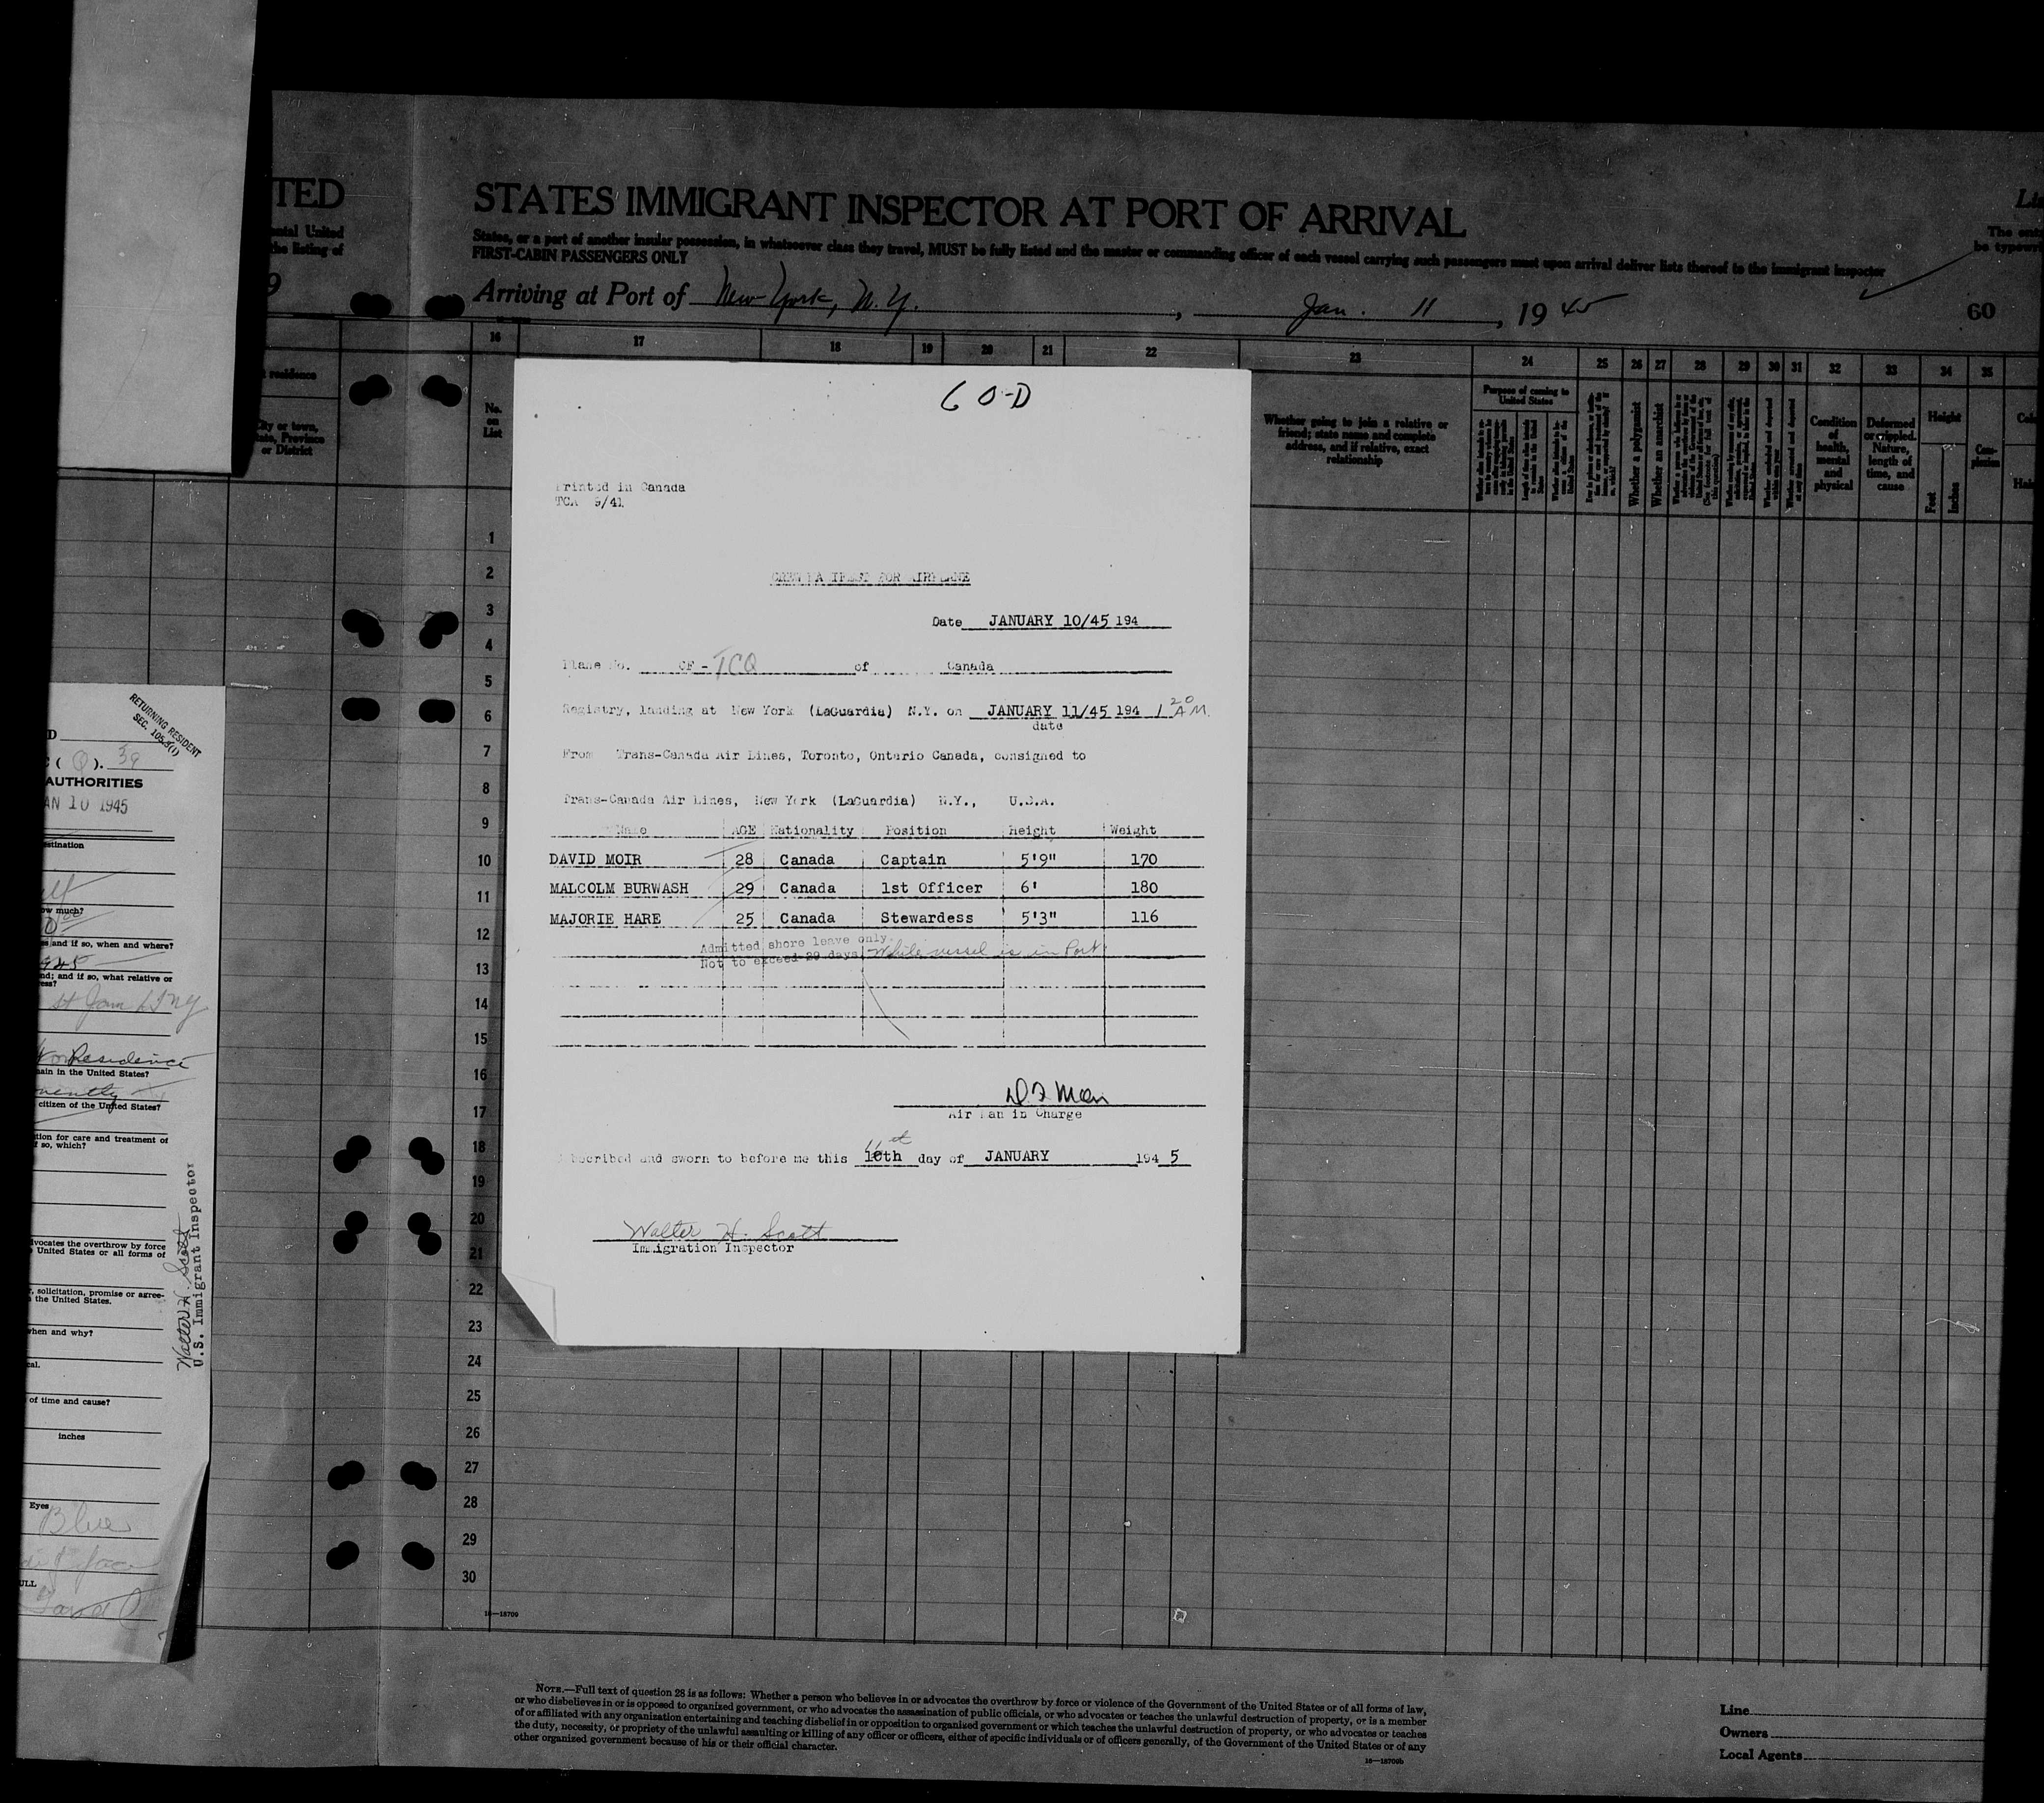 TED
ental United
the listing of
9
STATES IMMIGRANT INSPECTOR AT PORT OF ARRIVAL
States, or a part of another insular possession, in whatsoever class they travel, MUST be fully listed and the master or commanding officer of each vessel carrying such passengers must upon arrival deliver lists thereof to the immigrant inspector
FIRST-CABIN PASSENGERS ONLY
Lis
The entr
be typewr
Arriving at Port of New York, N.Y. , Jan. 11 , 19 45
60
16 17 18 19 20 21 22 23 24 25 26 27 28 29 30 31 32 33 34 35
residence
City or town,
State, Province
or District
No.
on
List
Whether going to join a relative or
friend; state name and complete
address, and if relative, exact
relationship
Purpose of coming to
United States
Whether a polygamist
Whether an anarchist
Condition
of
health,
mental
and
physical
Deformed
or crippled.
Nature,
length of
time, and
cause
Height
Feet
Inches
Com-
plexion
Hai
60-D
Printed in Canada
TCA 9/41
CREW MANIFEST FOR AIRPLANE
Date JANUARY 10/45 194
Plane No. CF-TCQ of Canada
Registry, landing at New York (LaGuardia) N.Y. on JANUARY 11/45 194 1 20 A.M.
date
From Trans-Canada Air Lines, Toronto, Ontario Canada, consigned to
Trans-Canada Air Lines, New York (LaGuardia) N.Y., U.S.A.
Name AGE Nationality Position Height Weight
DAVID MOIR 28 Canada Captain 5'9" 170
MALCOLM BURWASH 29 Canada 1st Officer 6' 180
MAJORIE HARE 25 Canada Stewardess 5'3" 116
Admitted shore leave only.
Not to exceed 29 days While vessel is in Port
Air Man in Charge
Subscribed and sworn to before me this 10th day of JANUARY 194 5
Walter H. Scott
Immigration Inspector
1
2
3
4
5
6
7
8
9
10
11
12
13
14
15
16
17
18
19
20
21
22
23
24
25
26
27
28
29
30
16—18709
RETURNING RESIDENT
SEC.
D
( Q ). 39
AUTHORITIES
AN 10 1945
estination
ow much?
es and if so, when and where?
nd; and if so, what relative or
ess?
Residence
main in the United States?
citizen of the United States?
tion for care and treatment of
f so, which?
dvocates the overthrow by force
United States or all forms of
r, solicitation, promise or agree-
the United States.
when and why?
cal.
of time and cause?
inches
Eyes
Blue
ULL
Walter H. Scott
U.S. Immigrant Inspector
NOTE.—Full text of question 28 is as follows: Whether a person who believes in or advocates the overthrow by force or violence of the Government of the United States or of all forms of law,
or who disbelieves in or is opposed to organized government, or who advocates the assassination of public officials, or who advocates or teaches the unlawful destruction of property, or is a member
of or affiliated with any organization entertaining and teaching disbelief in or opposition to organized government or which teaches the unlawful destruction of property, or who advocates or teaches
the duty, necessity, or propriety of the unlawful assaulting or killing of any officer or officers, either of specific individuals or of officers generally, of the Government of the United States or of any
other organized government because of his or their official character.
16—18709b
Line
Owners
Local Agents